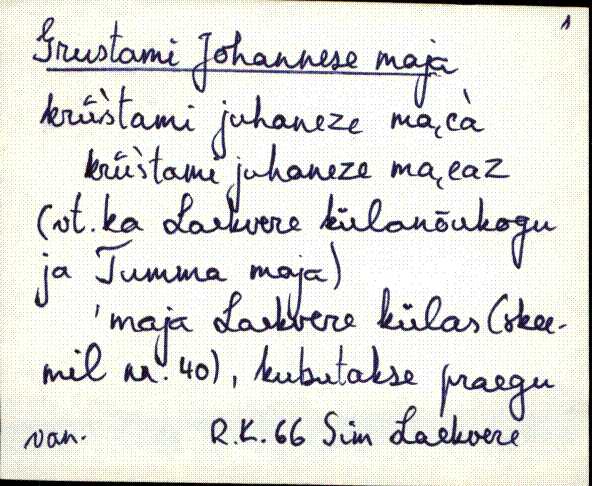 1
Grustami Johannese maja
krǖ̀stami juhaneze ma͕cà
krǖ̀stami juhaneze ma͕caz
(vt. ka Laekvere külanõukogu
ja Tumma maja)
'maja Laekvere külas (skee-
mil nr. 40), kubutakse praegu
van. R.K. 66 Sim Laekvere